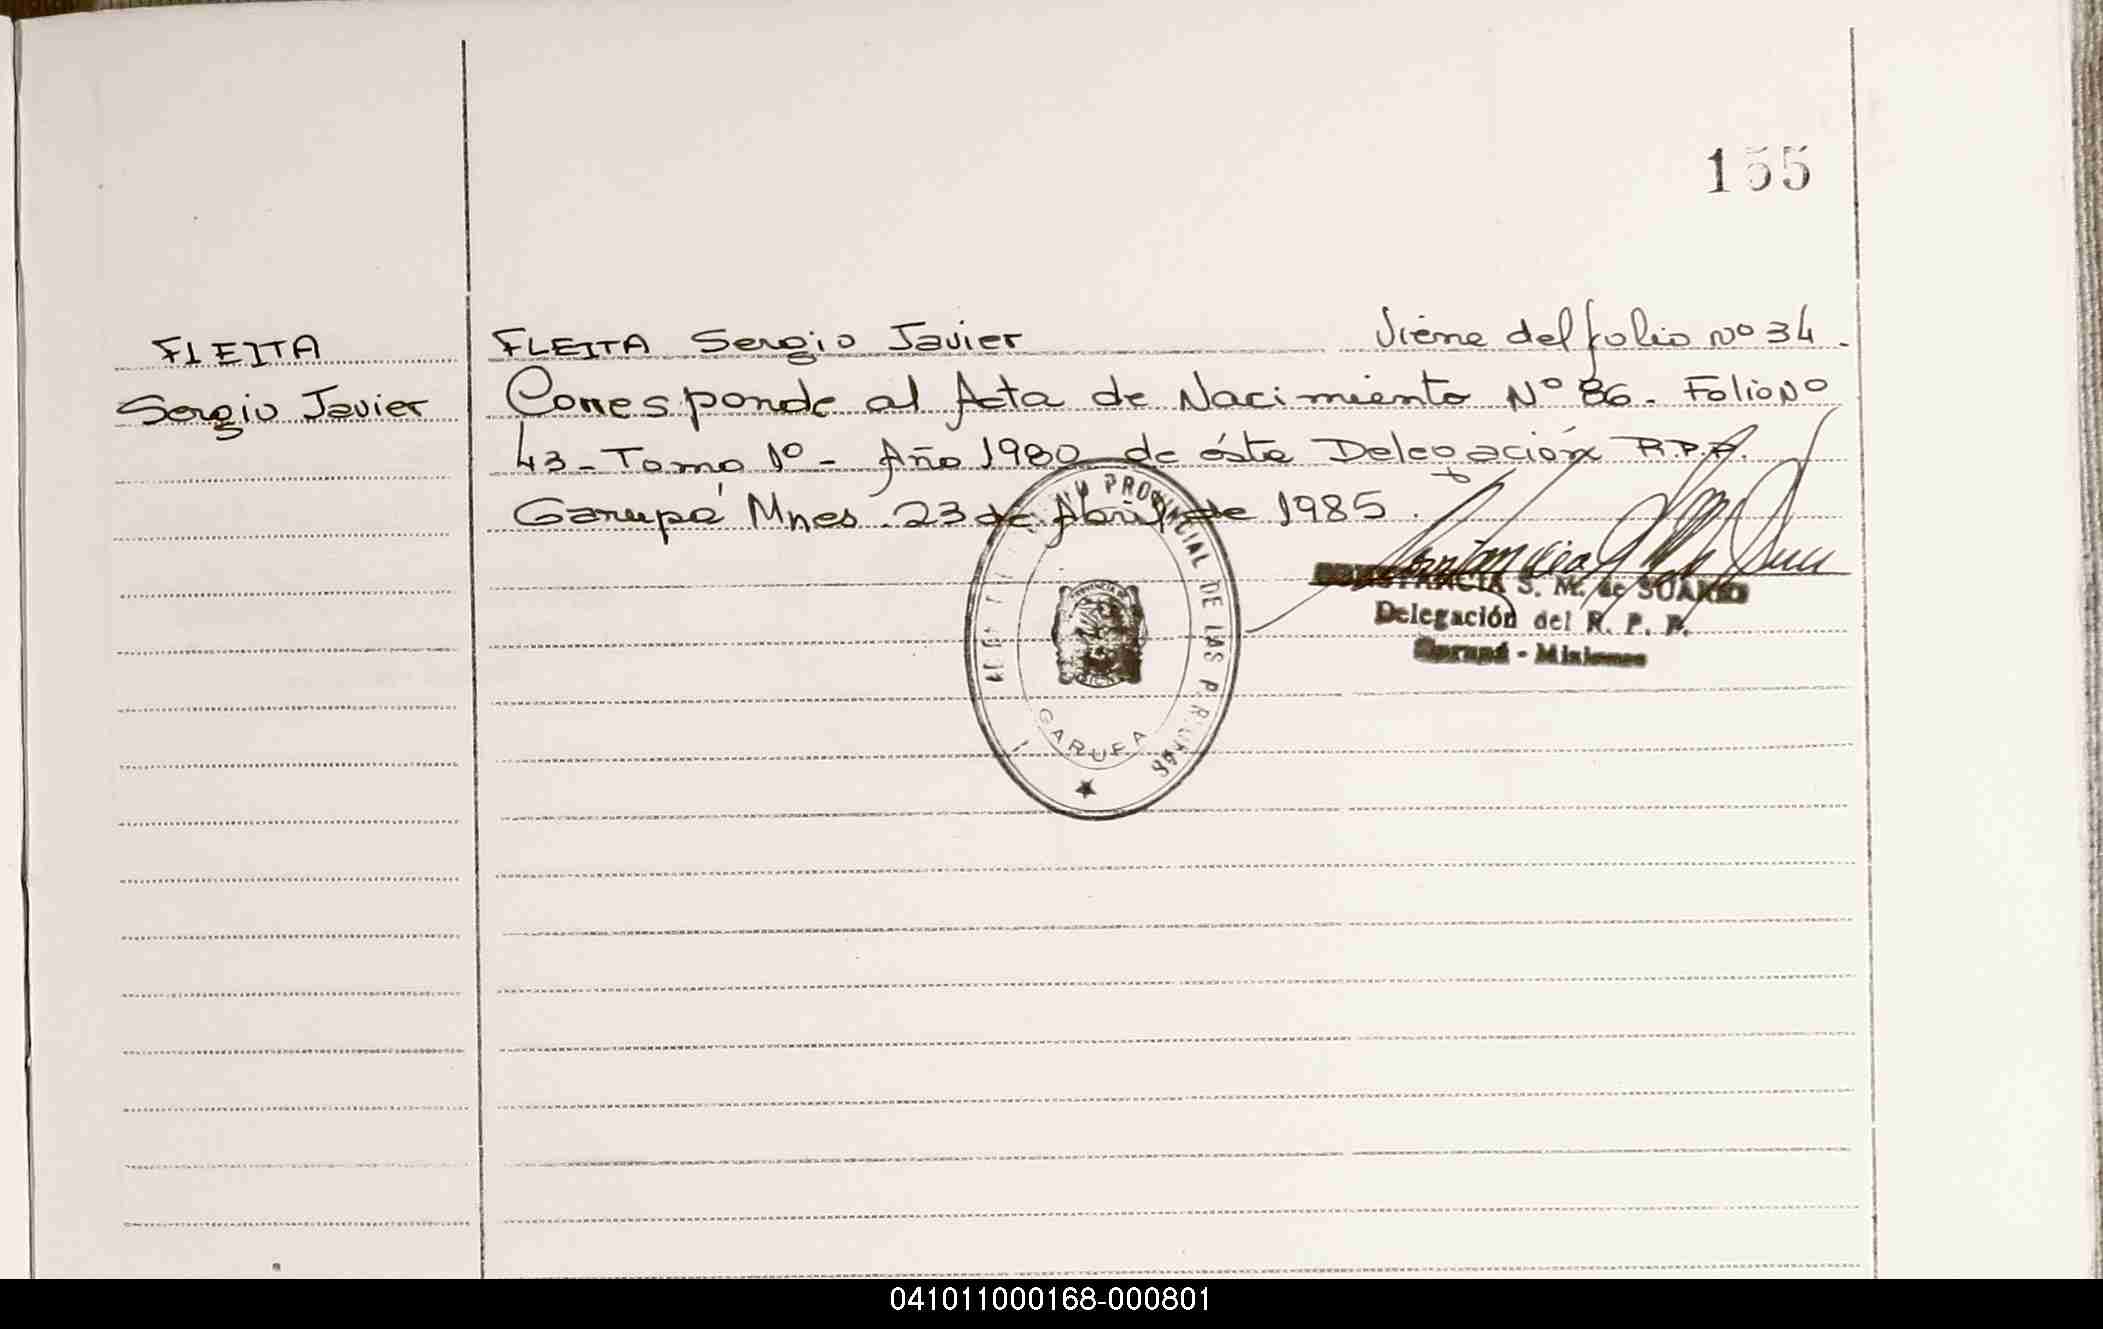 155
FLEITA
Sergio Javier
FLEITA Sergio Javier Viene del folio Nº 34.
Corresponde al Acta de Nacimiento Nº 86. Folio Nº
43 - Tomo 1º - Año 1980 de ésta Delegación R.P.P.
Garupá Mnes. 23 de Abril de 1985.
PROVINCIAL DE LAS PERSONAS
GARUPA
CONSTANCIA S. M. de SUAREZ
Delegación del R. P. P.
Garupá - Misiones
041011000168-000801